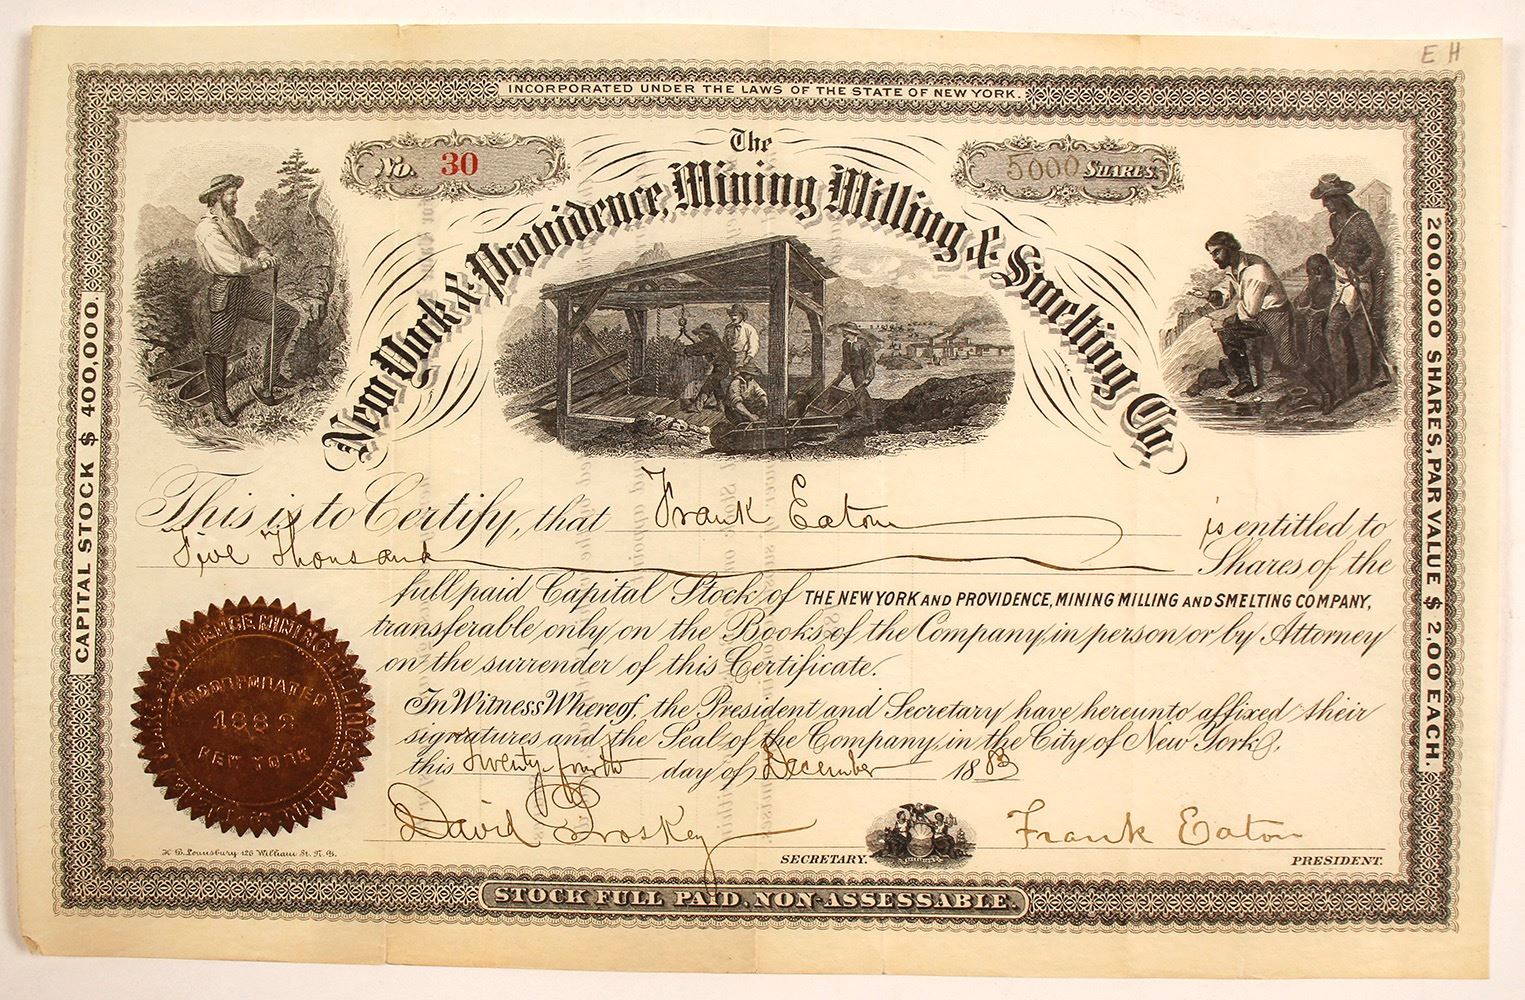 E H
INCORPORATED UNDER THE LAWS OF THE STATE OF NEW YORK.
No. 30
The
5000 SHARES
New York & Providence, Mining Milling & Smelting Co.
CAPITAL STOCK $ 400,000.
200,000 SHARES, PAR VALUE $ 2,00 EACH.
This is to Certify, that Frank Eaton is entitled to
Five Thousand Shares of the
full paid Capital Stock of THE NEW YORK AND PROVIDENCE, MINING MILLING AND SMELTING COMPANY,
transferable only on the Books of the Company, in person or by Attorney
on the surrender of this Certificate.
In Witness Whereof, the President and Secretary have hereunto affixed their
signatures and the Seal of the Company, in the City of New York,
this Twenty-fourth day of December 1883
PROVIDENCE MINING
INCORPORATED
NEW YORK
David Proskey
SECRETARY.
Frank Eaton
PRESIDENT.
H. B. Lounsbury 126 William St. N. Y.
STOCK FULL PAID, NON-ASSESSABLE.